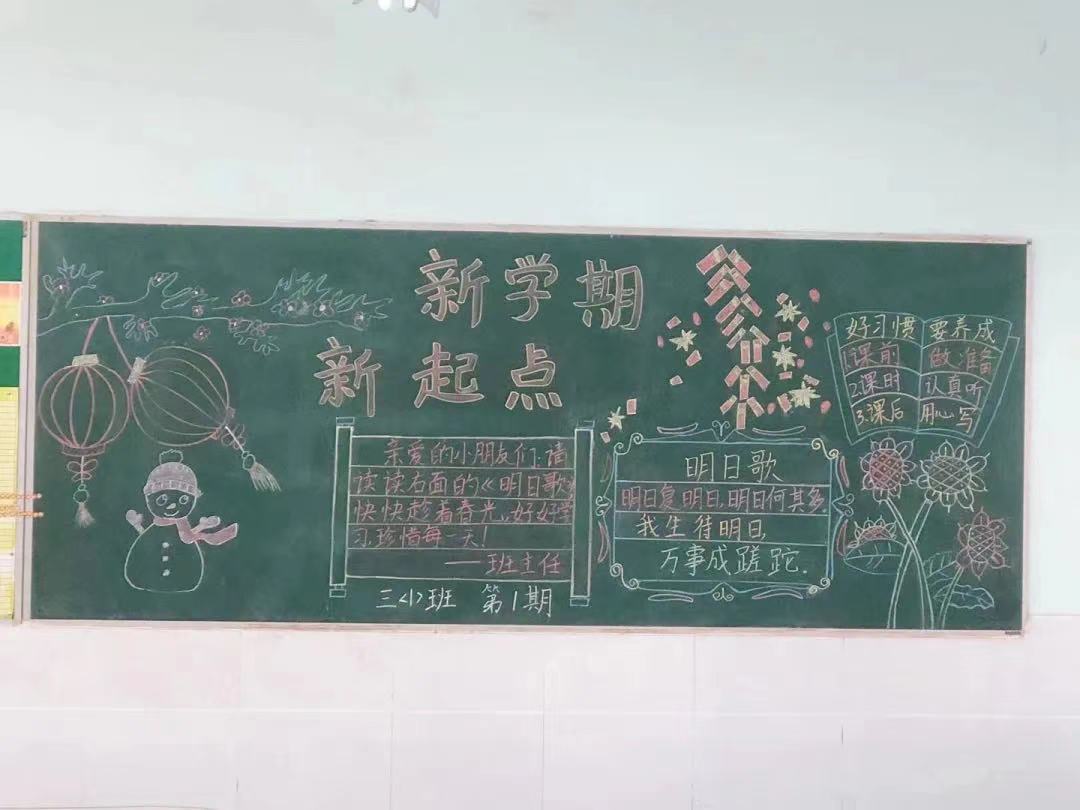 新学期
新起点
亲爱的小朋友们,请
读读右面的《明日歌》
快快趁着春光,好好学
习,珍惜每一天!
——班主任
三<1>班 第1期
明日歌
明日复明日,明日何其多,
我生待明日,
万事成蹉跎.
好习惯 要养成
1.课前 做准备
2.课时 认真听
3.课后 用心写